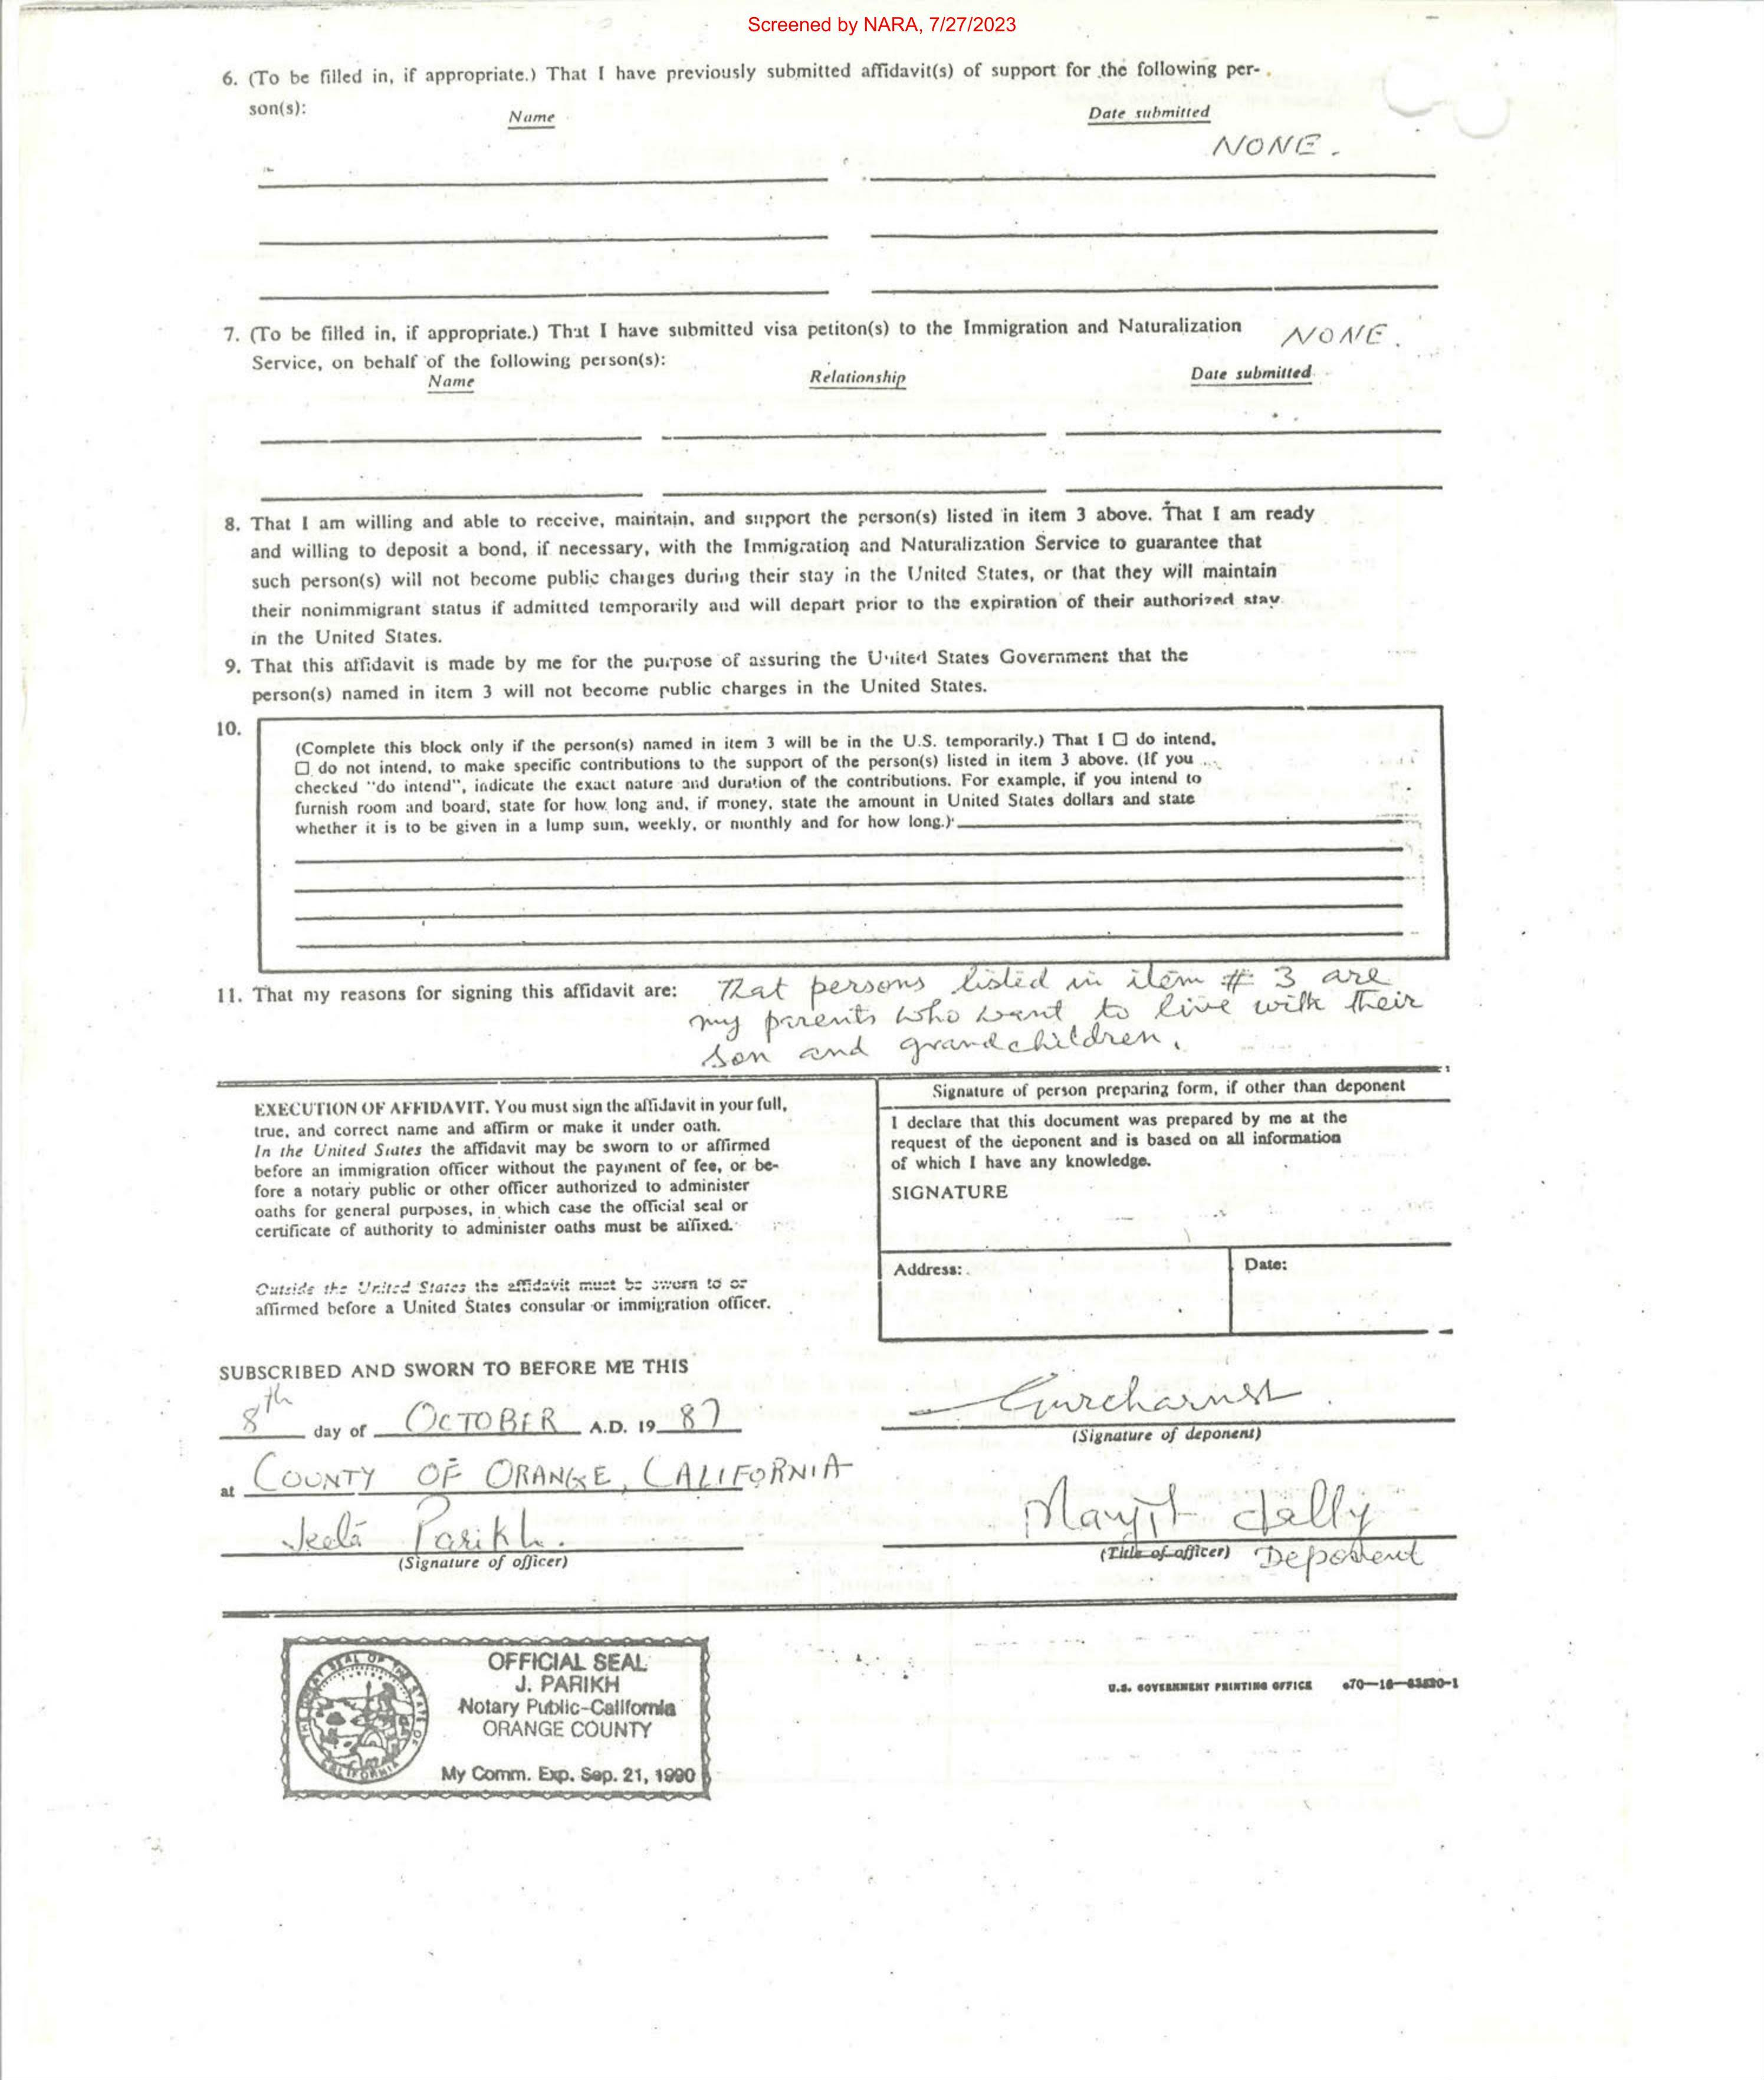 Screened by NARA, 7/27/2023
6. (To be filled in, if appropriate.) That I have previously submitted affidavit(s) of support for the following per-
son(s):
Name Date submitted
NONE.
7. (To be filled in, if appropriate.) That I have submitted visa petiton(s) to the Immigration and Naturalization NONE.
Service, on behalf of the following person(s):
Name Relationship Date submitted
8. That I am willing and able to receive, maintain, and support the person(s) listed in item 3 above. That I am ready
and willing to deposit a bond, if necessary, with the Immigration and Naturalization Service to guarantee that
such person(s) will not become public charges during their stay in the United States, or that they will maintain
their nonimmigrant status if admitted temporarily and will depart prior to the expiration of their authorized stay
in the United States.
9. That this affidavit is made by me for the purpose of assuring the United States Government that the
person(s) named in item 3 will not become public charges in the United States.
10.
(Complete this block only if the person(s) named in item 3 will be in the U.S. temporarily.) That I ☐ do intend,
☐ do not intend, to make specific contributions to the support of the person(s) listed in item 3 above. (If you
checked "do intend", indicate the exact nature and duration of the contributions. For example, if you intend to
furnish room and board, state for how long and, if money, state the amount in United States dollars and state
whether it is to be given in a lump sum, weekly, or monthly and for how long.)
11. That my reasons for signing this affidavit are: That persons listed in item # 3 are
my parents who want to live with their
son and grandchildren.
EXECUTION OF AFFIDAVIT. You must sign the affidavit in your full,
true, and correct name and affirm or make it under oath.
In the United States the affidavit may be sworn to or affirmed
before an immigration officer without the payment of fee, or be-
fore a notary public or other officer authorized to administer
oaths for general purposes, in which case the official seal or
certificate of authority to administer oaths must be affixed.
Outside the United States the affidavit must be sworn to or
affirmed before a United States consular or immigration officer.
Signature of person preparing form, if other than deponent
I declare that this document was prepared by me at the
request of the deponent and is based on all information
of which I have any knowledge.
SIGNATURE
Address: Date:
SUBSCRIBED AND SWORN TO BEFORE ME THIS
8th day of OCTOBER A.D. 19 87
(Signature of deponent)
at COUNTY OF ORANGE, CALIFORNIA
Parikh
(Signature of officer)
(Title of officer) Deponent
OFFICIAL SEAL
J. PARIKH
Notary Public-California
ORANGE COUNTY
My Comm. Exp. Sep. 21, 1990
U.S. GOVERNMENT PRINTING OFFICE